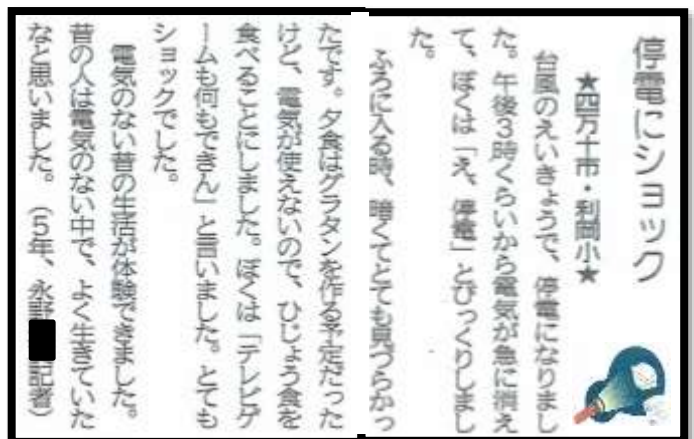 停電にショック
★四万十市・利岡小★
台風のえいきょうで、停電になりまし
た。午後3時くらいから電気が急に消え
て、ぼくは「え、停電」とびっくりしまし
た。
ふろに入る時、暗くてとても見づらかっ
たです。夕食はグラタンを作る予定だった
けど、電気が使えないので、ひじょう食を
食べることにしました。ぼくは「テレビゲ
ームも何もできん」と言いました。とても
ショックでした。
電気のない昔の生活が体験できました。
昔の人は電気のない中で、よく生きていた
なと思いました。（5年、永野 記者）